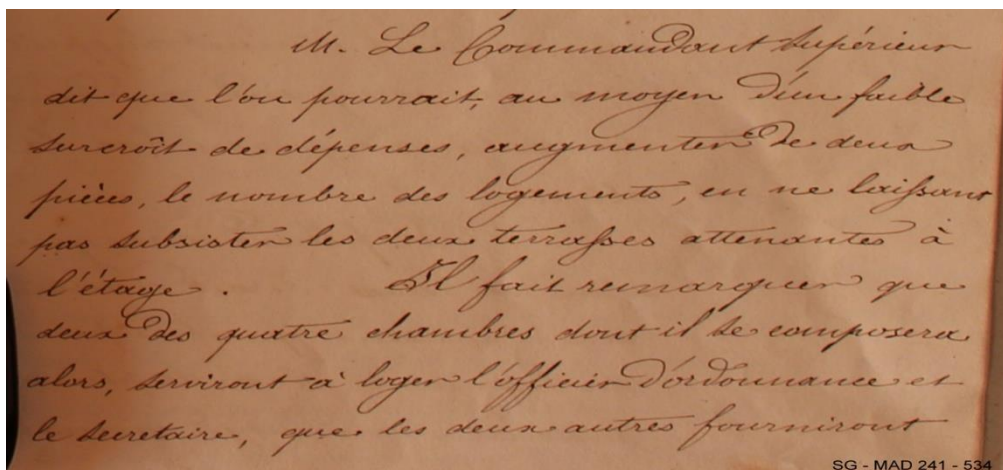 M. Le Commandant Supérieur
dit que l'on pourrait, au moyen d'un faible
surcroît de dépenses, augmenter de deux
pièces, le nombre des logements, en ne laissant
pas subsister les deux terrasses attenantes à
l'étage. Il fait remarquer que
deux des quatre chambres dont il se composera
alors, serviront à loger l'officier d'ordonnance et
le secretaire, que les deux autres fourniront
SG - MAD 241 - 534